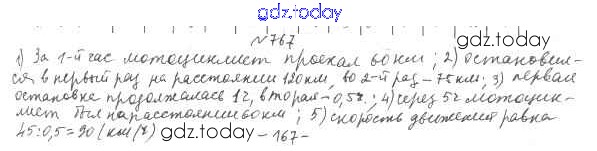 gdz.today
№767
1) За 1-й час мотоциклист проехал 60 км; 2) остановил-
ся в первый раз на расстоянии 120 км, во 2-й раз – 75 км; 3) первая
остановка продолжалась 1 ч, вторая – 0,5 ч; 4) через 5 ч мотоцик-
лист был на расстоянии 60 км; 5) скорость движения равна
45:0,5=90 (км/ч)
gdz.today
– 167 –
gdz.today